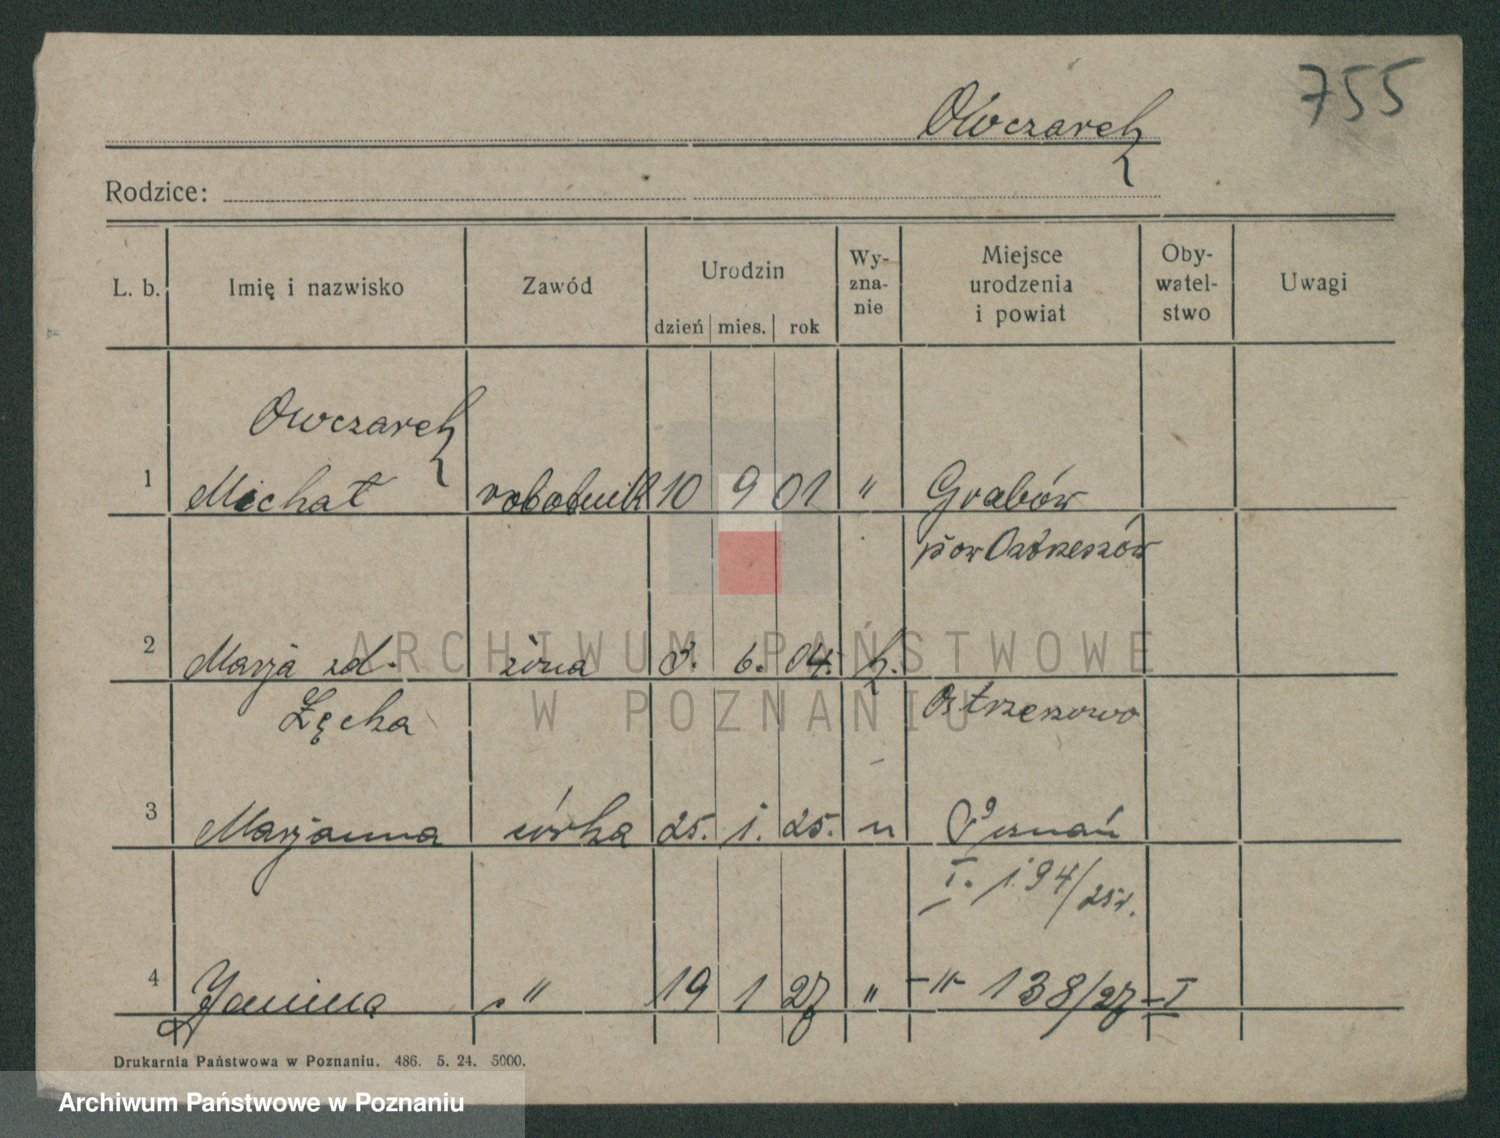 755
Owczarek
Rodzice:
L. b. Imię i nazwisko Zawód Urodzin dzień mies. rok Wy-zna-nie Miejsce urodzenia i powiat Oby-watel-stwo Uwagi
Owczarek
1 Michał robotnik 10 9 01 " Grabów
pow Ostrzeszów
2 Marja zd. żona 3. 6. 04. k.
Łęcka Ostrzeszowo
3 Marjanna córka 25. 1. 25. " Poznań
I. 194/25r.
4 Janina " 19 1 27 " -"- 138/27 I
Drukarnia Państwowa w Poznaniu. 486. 5. 24. 5000.
ARCHIWUM PAŃSTWOWE
W POZNANIU
Archiwum Państwowe w Poznaniu